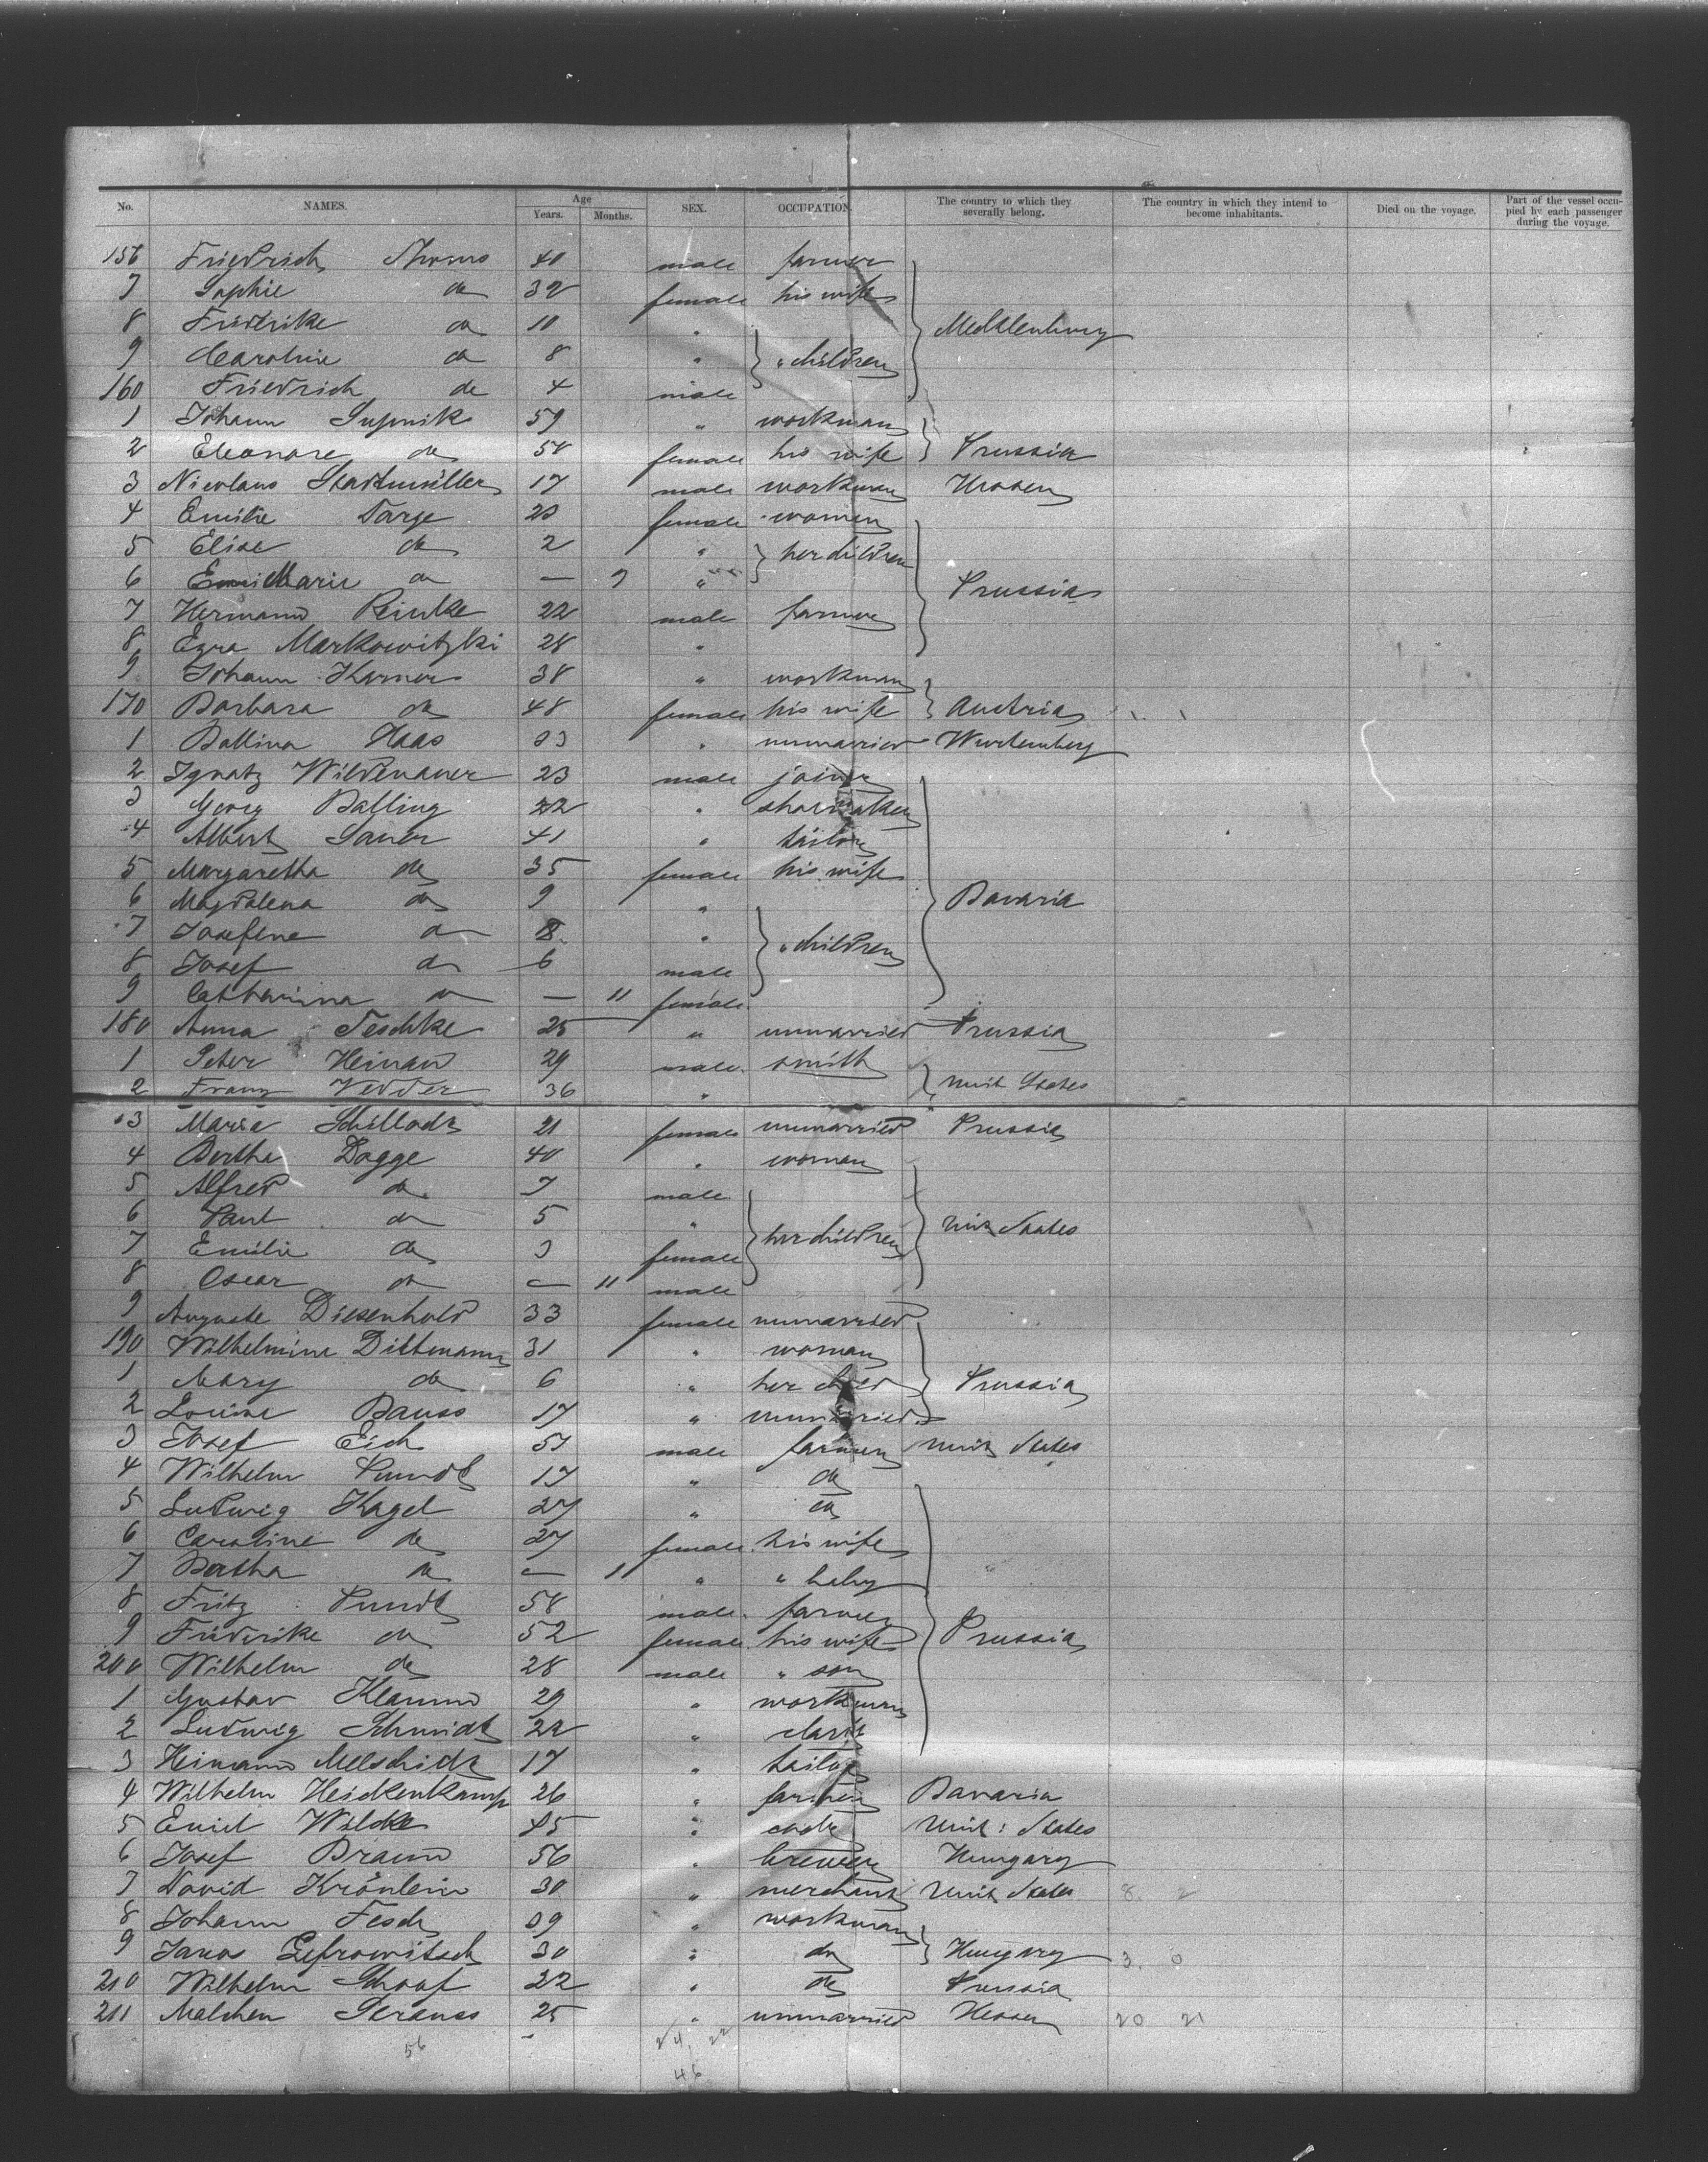 No. NAMES. Age Years. Months. SEX. OCCUPATION. The country to which they severally belong. The country in which they intend to become inhabitants. Died on the voyage. Part of the vessel occupied by each passenger during the voyage.
156 Friedrich 40 male farmer
7 Sophie do 32 female his wife
8 Fridrike do 10 " Mecklenburg
9 Caroline do 8 " " children
160 Friedrich do 4 male
1 Johann 59 " workman
2 Eleonore do 58 female his wife Prussia
3 Nicolaus Stadtmüller 17 male workman Hessen
4 Emilie Targe 23 female women
5 Elise do 2 " her children
6 Marie do — 9 " Prussia
7 Hermann Reinke 22 male farmer
8 Ezra Markowitzki 28 "
9 Johann Karner 38 " workman
170 Barbara do 48 female his wife Austria
1 Haas 23 " unmarried Wurtemberg
2 Ignatz Wildenauer 23 male joiner
3 Georg Balling 22 " shoemaker
4 Albert Sauer 41 " tailor
5 Margaretha do 35 female his wife
6 Magdalena do 9 " Bavaria
7 Josefine do 8 " " children
8 Josef do 6 male
9 Catharina do — 11 female
180 Anna Teschke 25 " unmarried Prussia
1 Peter Heinan 29 male smith
2 Franz Vedder 36 " Unit States
3 Maria 21 female unmarried Prussia
4 Bertha Dogge 40 " woman
5 Alfred do 7 male
6 Paul do 5 " Unit States
7 Emilie do 3 female her children
8 Oscar do — 11 male
9 Auguste Diesenhold 33 female unmarried
190 Wilhelmine Dittmann 31 " woman
1 Mary do 6 " her child Prussia
2 Louise Bauss 17 " unmarried
3 Josef Eich 51 male farmer Unit States
4 Wilhelm Pundt 17 " do
5 Ludwig Kagel 27 " do
6 Caroline do 27 female his wife
7 Bertha do — 11 " " baby
8 Fritz Pundt 58 male farmer
9 Fridrike do 52 female his wife Prussia
200 Wilhelm do 28 male " son
1 Gustav Klamm 29 " workman
2 Ludwig Schmidt 22 " clark
3 17 " tailor
4 Wilhelm Heickenkamp 26 " farmer Bavaria
5 Emil Wilcke 45 " Unit: States
6 Josef Braun 56 " brewer Hungary
7 David Krönlein 30 " merchant Unit States 8. 2
8 Johann Fesch 39 " workman
9 Janos 30 " do Hungary 3. 0
210 Wilhelm Schaaf 22 " do Prussia
211 Malchen Strauss 25 " unmarried Hessen 20 21
56 24. 22
46